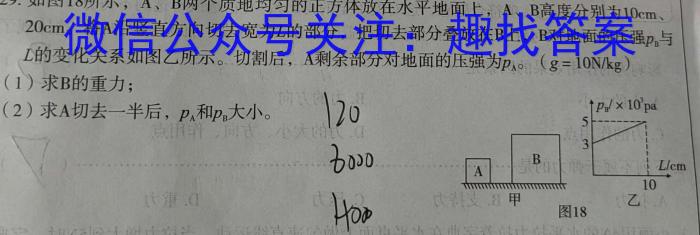 29. 如图18所示，A、B两个质地均匀的正方体放在水平地面上，A、B高度分别为10cm、
20cm
微信公众号关注：趣找答案
对地面的压强pB与
L的变化关系如图乙所示。切割后，A剩余部分对地面的压强为pA。（g=10N/kg）
（1）求B的重力；
（2）求A切去一半后，pA和pB大小。
120
6000
400
A
B
甲
图18
pB/×10³pa
5
3
10
L/cm
乙